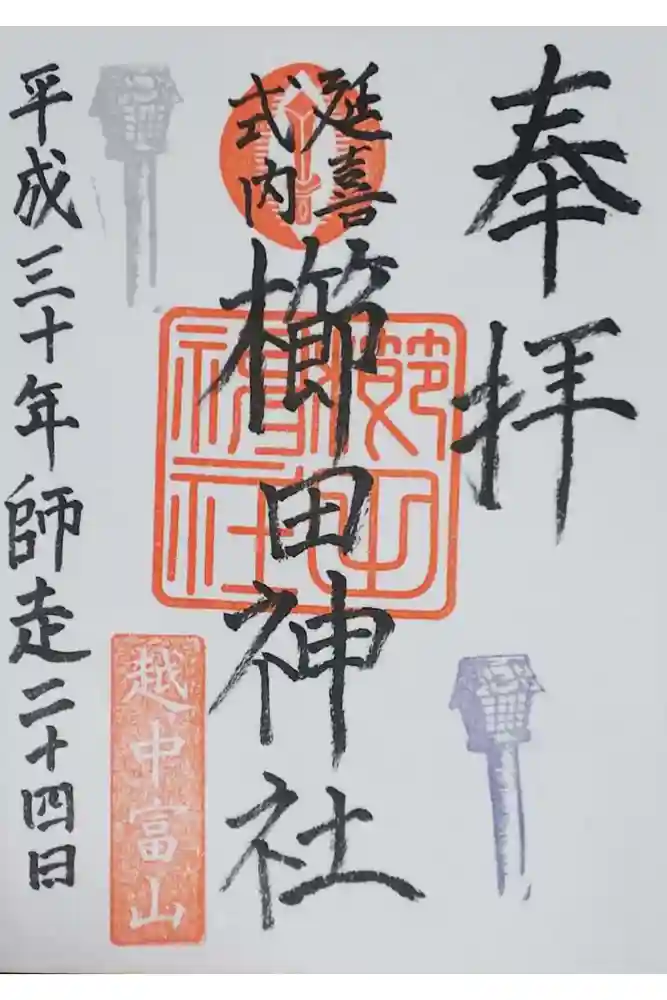 奉拝
延喜
式内
櫛田神社
櫛田神社
越中富山
平成三十年師走二十四日